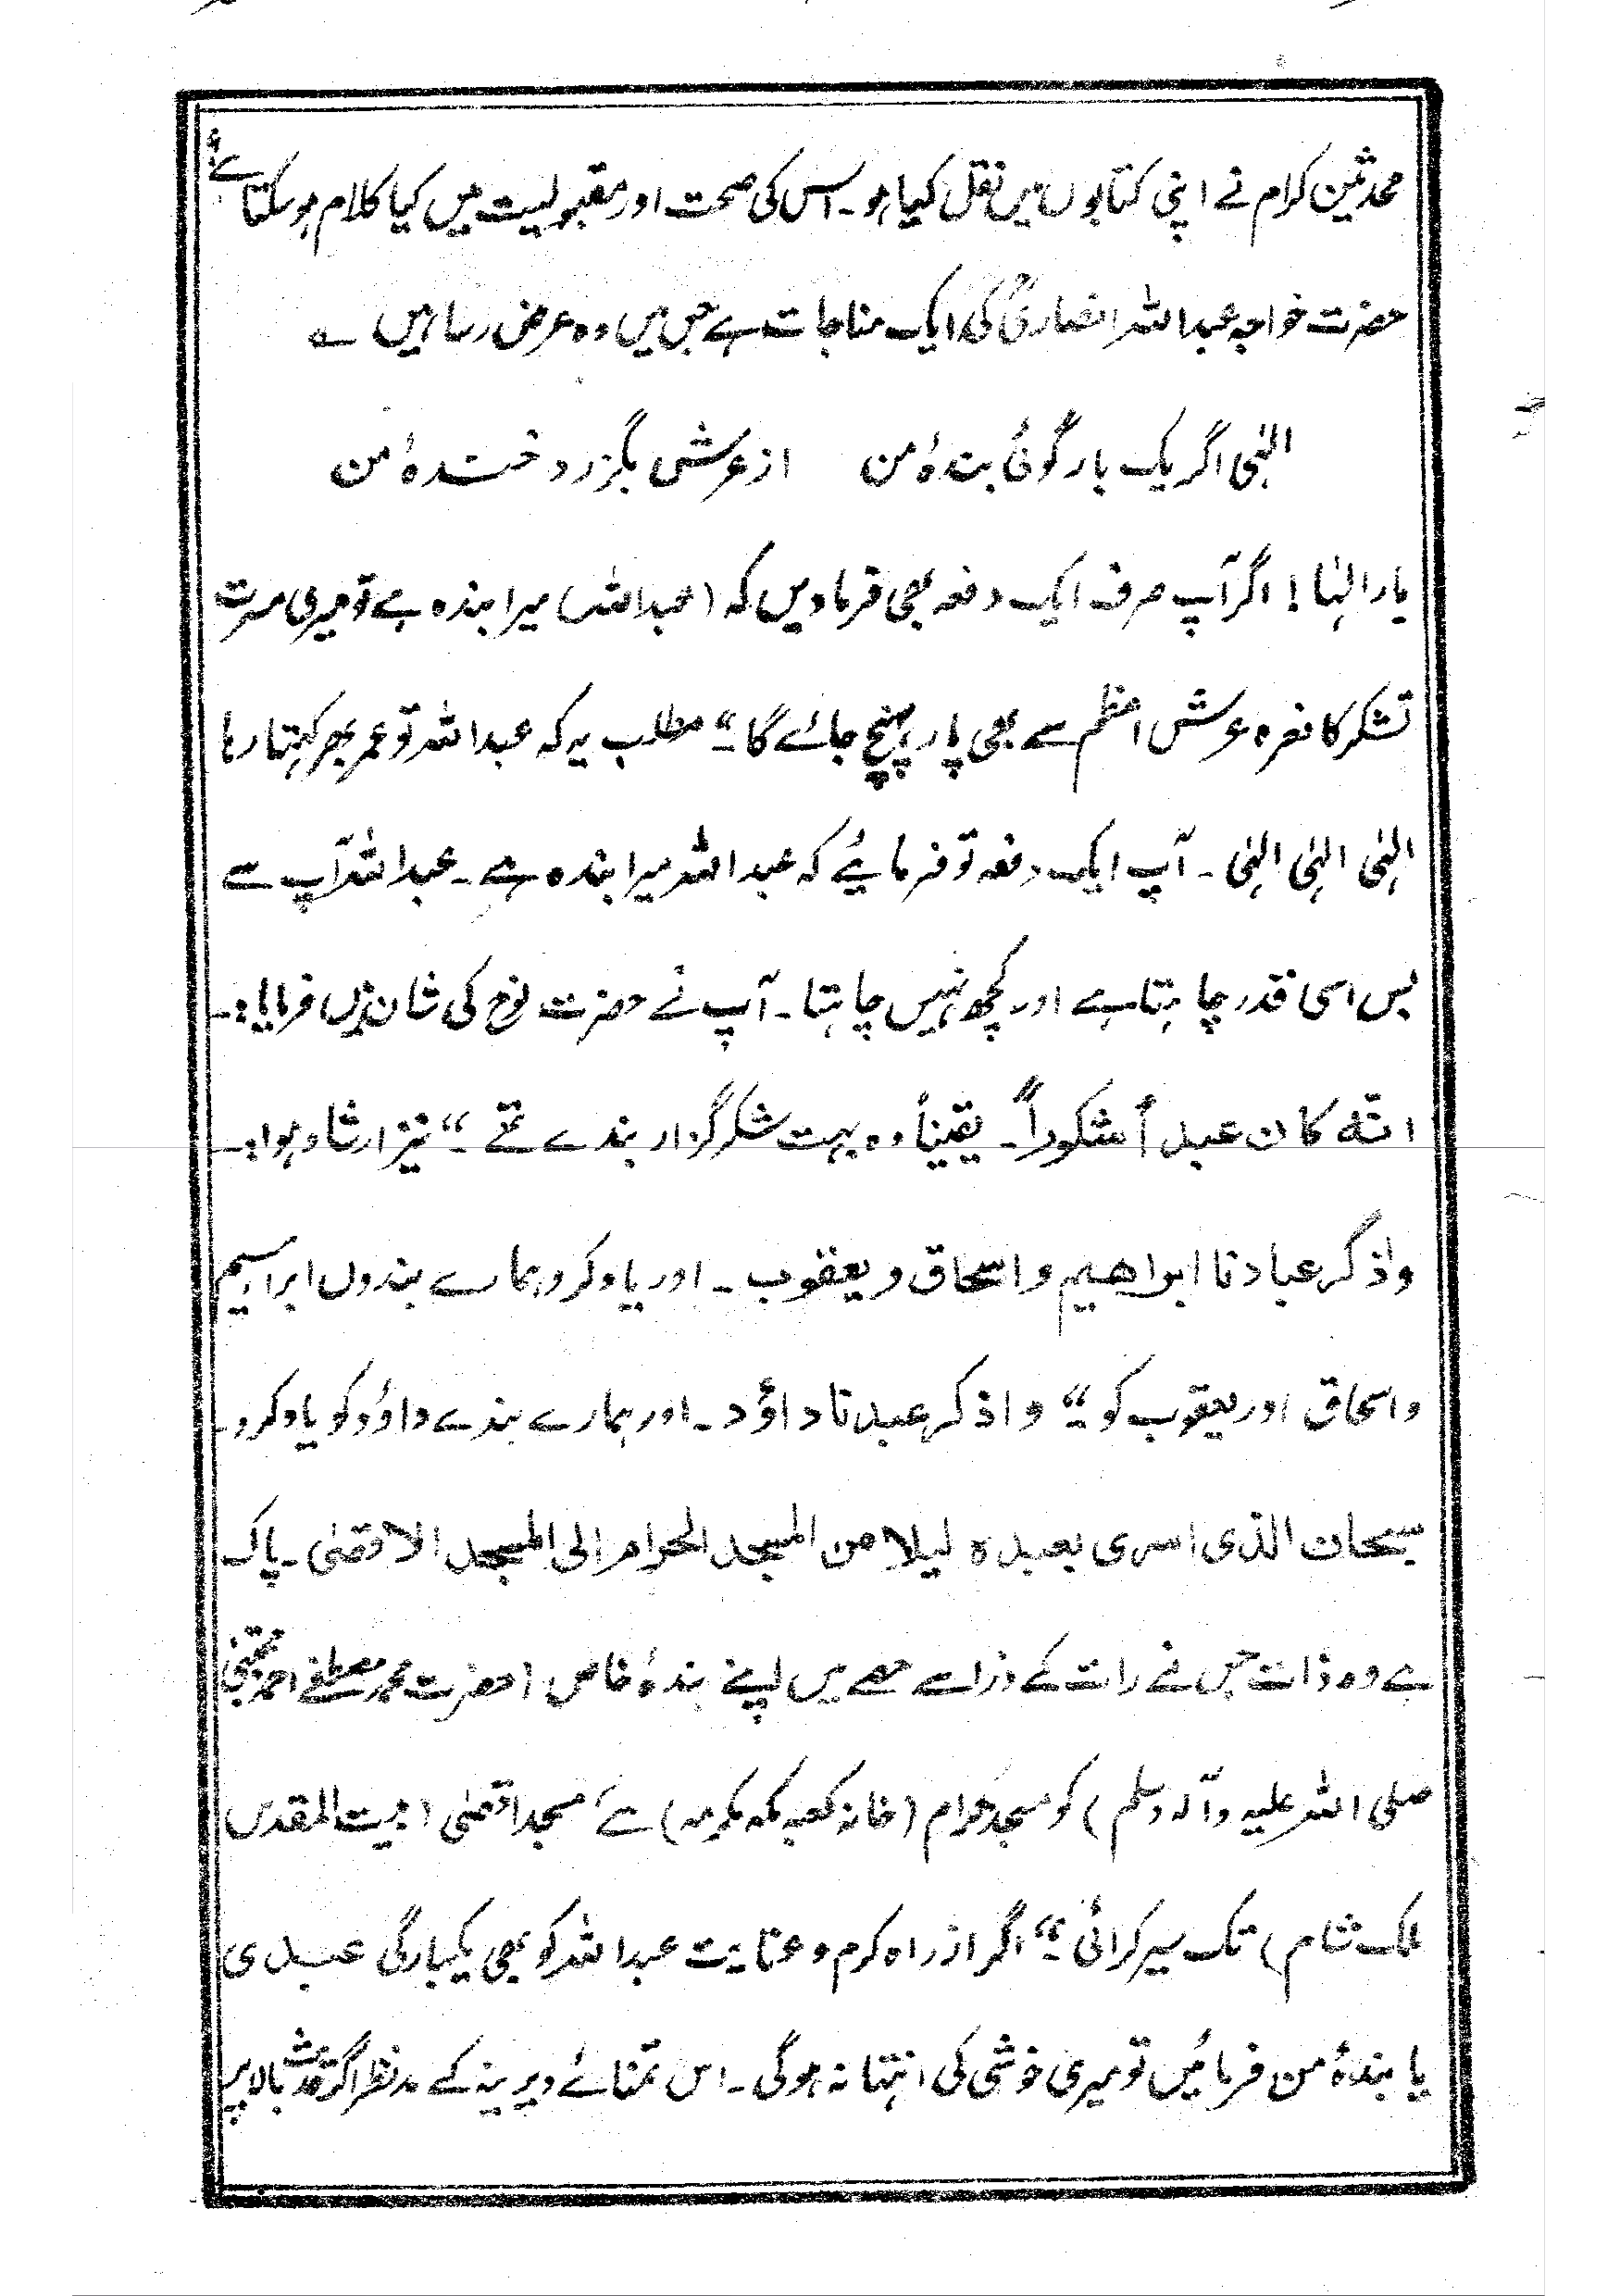 محدثین کرام نے اپنی کتابوں میں نقل کیا ہو۔ اس کی صحت اور مقبولیت میں کیا کلام ہو سکتا ہے
حضرت خواجہ عبداللہ انصاریؒ کی ایک مناجات ہے جس میں وہ عرض رسا ہیں ؎
الٰہی اگر یک بار گوئی بندۂ من از عرش بگزرد خندۂ من
بار الٰہا! اگر آپ صرف ایک دفعہ بھی فرما دیں کہ (عبداللہ) میرا بندہ ہے تو میری مسرت
تشکر کا نعرہ عرش اعظم سے بھی پار پہنچ جائے گا۔“ مطلب یہ کہ عبداللہ تو عمر بھر کہتا رہا
الٰہی الٰہی الٰہی ۔ آپ ایک دفعہ تو فرمائیے کہ عبداللہ میرا بندہ ہے ۔ عبداللہ آپ سے
بس اسی قدر چاہتا ہے اور کچھ نہیں چاہتا ۔ آپ نے حضرت نوح کی شان میں فرمایا:۔
انّہ کان عبداً شکوراً ۔ یقیناً وہ بہت شکر گزار بندے تھے ۔“ نیز ارشاد ہوا:۔
واذکر عبادنا ابراھیم واسحاق ویعقوب ۔ اور یاد کرو ہمارے بندوں ابراہیم
واسحاق اور یعقوب کو ۔“ واذکر عبدنا داؤد ۔ اور ہمارے بندے داؤد کو یاد کرو۔
سبحان الذی اسری بعبدہ لیلا من المسجد الحرام الی المسجد الاقصیٰ ۔ پاک
ہے وہ ذات جس نے رات کے ذرا سے حصے میں اپنے بندۂ خاص (حضرت محمد مصطفےٰ احمد مجتبیٰ
صلی اللہ علیہ وآلہ وسلم) کو مسجد حرام (خانہ کعبہ مکہ مکرمہ) سے مسجد اقصیٰ (بیت المقدس
ملک شام) تک سیر کرائی ۔“ اگر از راہ کرم و عنایت عبداللہ کو بھی یکبارگی عبدی
یا بندۂ من فرمائیں تو میری خوشی کی انتہا نہ ہوگی ۔ اس تمنائے دیرینہ کے مدنظر اگر بالا پر